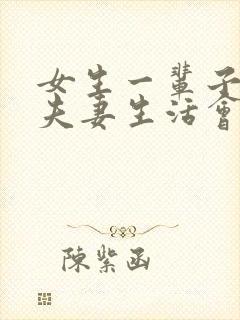 女生一輩子
夫妻生活會
陳紫函